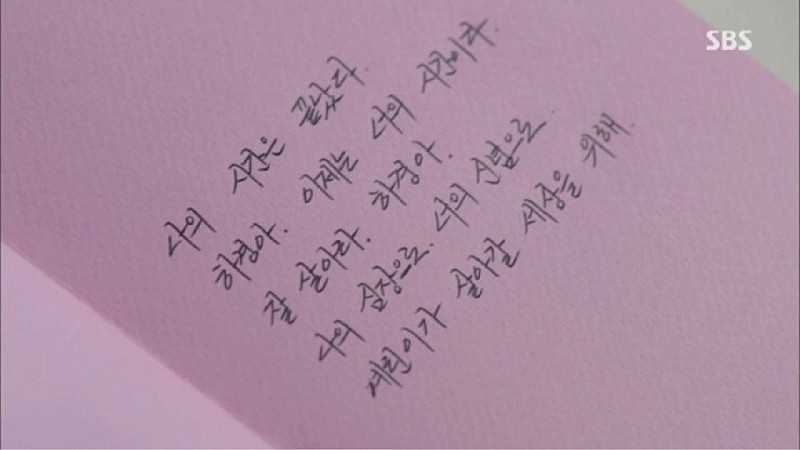 SBS
나의 시간은 끝났다.
하경아. 이제는 너의 시간이다.
잘 살아라. 하경아.
나의 심장으로. 너의 신념으로.
예린이가 살아갈 세상을 위해.